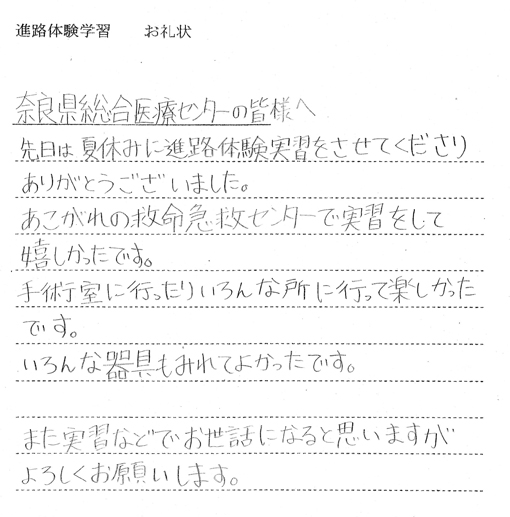 進路体験学習　　お礼状
奈良県総合医療センターの皆様へ
先日は夏休みに進路体験実習をさせてくださり
ありがとうございました。
あこがれの救命急救センターで実習をして
嬉しかったです。
手術室に行ったりいろんな所に行って楽しかった
です。
いろんな器具もみれてよかったです。
また実習などでお世話になると思いますが
よろしくお願いします。